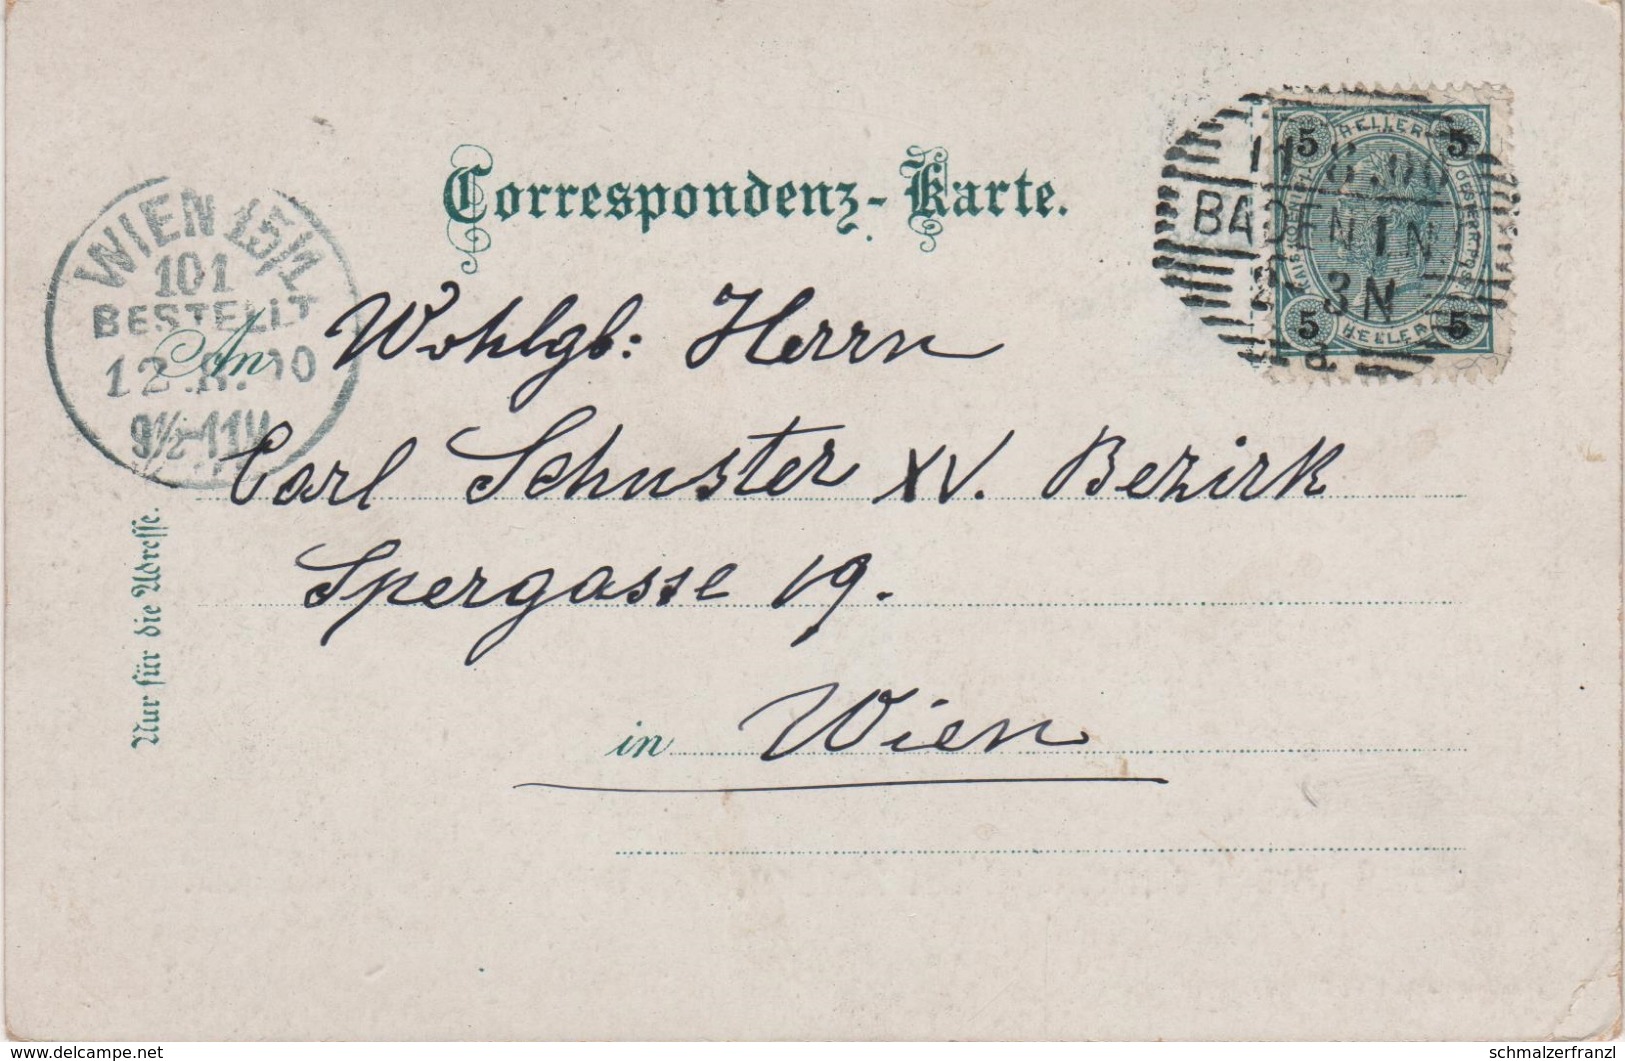 Correspondenz-Karte.
WIEN 15/1
101
BESTELLT
12.8.00
9½-11V
5 HELLER 5
5 HELLER 5
11.8.00
BADEN 1 N
2-3N
a
An Wohlgb: Herrn
Carl Schuster XV. Bezirk
Spergasse 19.
in Wien
Nur für die Adresse.
www.delcampe.net
schmalzerfranzl